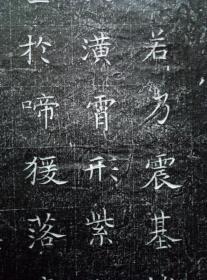 若乃震基
潢霄形紫
於啼猨落